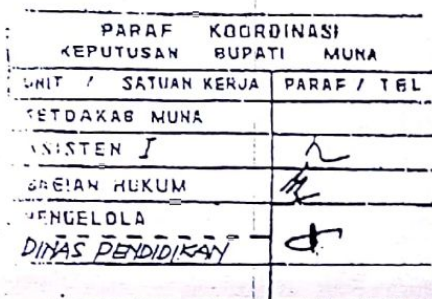 PARAF KOORDINASI
KEPUTUSAN BUPATI MUNA
UNIT / SATUAN KERJA PARAF / TGL
SETDAKAB MUNA
ASISTEN I
BAGIAN HUKUM
PENGELOLA
DINAS PENDIDIKAN